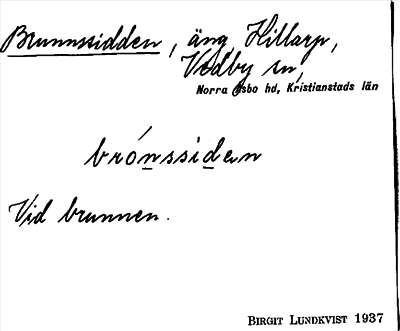 Brunnssidden, äng, Hillarp,
Vedby sn,
Norra Åsbo hd, Kristianstads län
brónssidan
Vid brunnen.
BIRGIT LUNDKVIST 1937